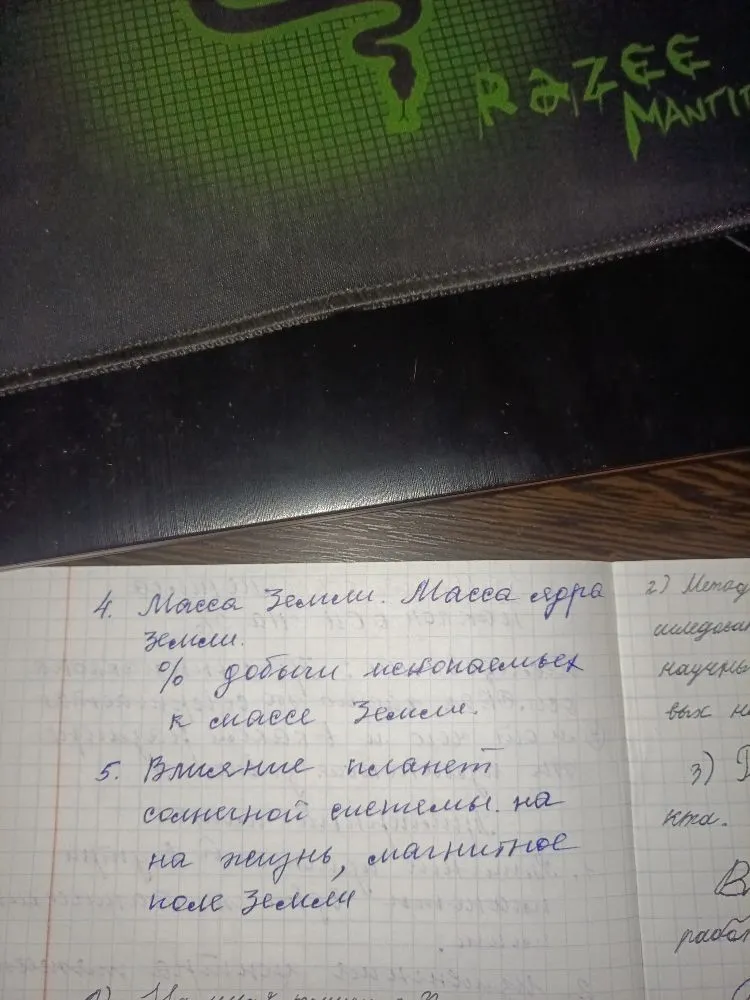 RAZEE
MANTI
4. Масса Земли. Масса ядра
Земли.
% добычи ископаемых
к массе Земли.
5. Влияние планет
солнечной системы. на
на жизнь, магнитное
поле Земли
2) Метод
исследован
научны
вых на
3)
кта.
В
работ